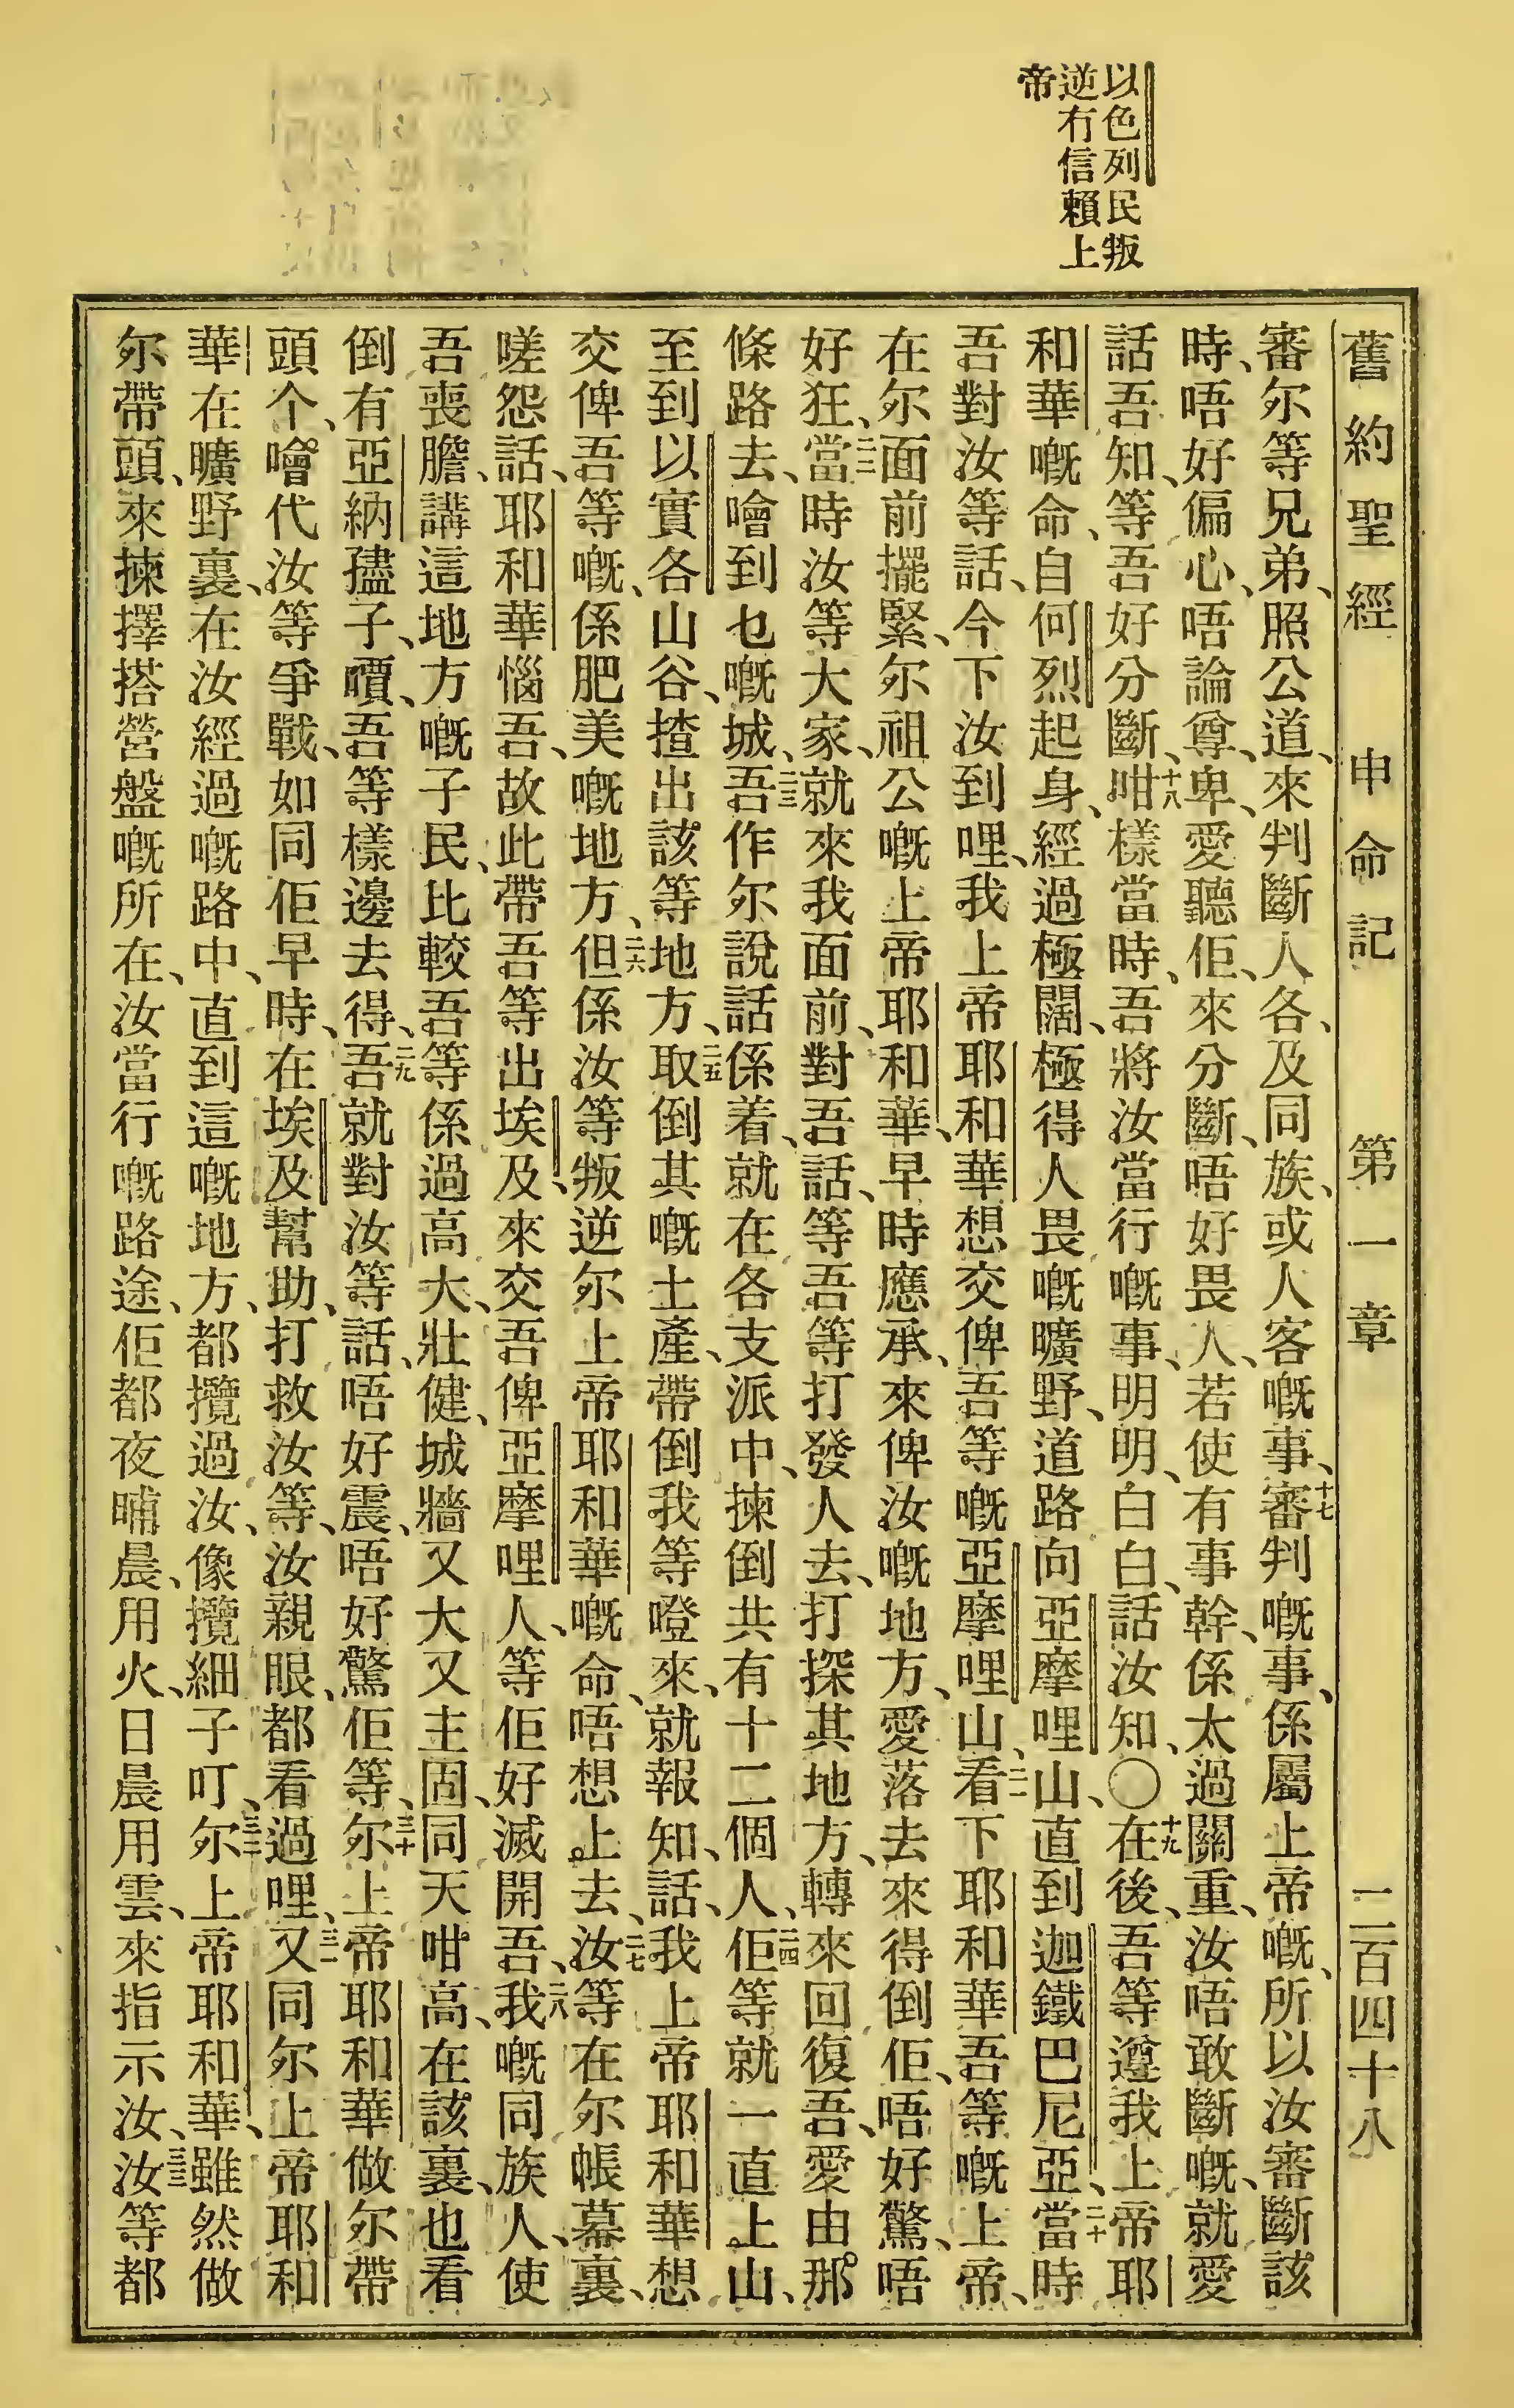 以色列民叛
逆冇信賴上
帝
舊約聖經 申命記 第一章 二百四十八
審尔等兄弟、照公道、來判斷人各、及同族、或人客嘅事、十七審判嘅事、係屬上帝嘅、所以汝審斷該
時、唔好偏心、唔論尊、卑、愛聽佢、來分斷、唔好畏人、若使有事幹、係太過關重、汝唔敢斷嘅、就愛
話吾知、等吾好分斷、十八咁樣當時、吾將汝當行嘅事、明明、白白、話汝知、〇十九在後、吾等遵我上帝耶
和華嘅命、自何烈起身、經過極闊、極得人畏嘅曠野、道路向亞摩哩山、直到迦鐵巴尼亞、二十當時
吾對汝等話、今下汝到哩、我上帝耶和華想交俾吾等嘅亞摩哩山、二一看下耶和華吾等嘅上帝、
在尔面前擺緊、尔祖公嘅上帝耶和華、早時應承、來俾汝嘅地方、愛落去來得倒佢、唔好驚、唔
好狂、二二當時汝等大家、就來我面前、對吾話、等吾等打發人去、打探其地方、轉來回復吾、愛由那
條路去、噲到乜嘅城、二三吾作尔說話係着、就在各支派中、揀倒共有十二個人、二四佢等就一直上山、
至到以實各山谷、揸出該等地方、二五取倒其嘅土產、帶倒我等嶝來、就報知、話、我上帝耶和華想
交俾吾等嘅、係肥美嘅地方、二六但係汝等叛逆尔上帝耶和華嘅命、唔想上去、二七汝等在尔帳幕裏、
嗟怨話、耶和華惱吾、故此帶吾等出埃及、來交吾俾亞摩哩人、等佢好滅開吾、二八我嘅同族人、使
吾喪膽、講這地方嘅子民、比較吾等係過高大、壯健、城牆又大又主固、同天咁高、在該裏、也看
倒有亞納孻子、嘳、吾等樣邊去得、二九吾就對汝等話、唔好震、唔好驚佢等、三十尔上帝耶和華做尔帶
頭个、噲代汝等爭戰、如同佢早時、在埃及幫助、打救汝等、汝親眼、都看過哩、三一又同尔上帝耶和
華在曠野裏、在汝經過嘅路中、直到這嘅地方、都攬過汝、像攬細子叮、三二尔上帝耶和華、雖然做
尔帶頭、來揀擇搭營盤嘅所在、汝當行嘅路途、佢都夜晡晨、用火、日晨用雲、來指示汝、三三汝等都